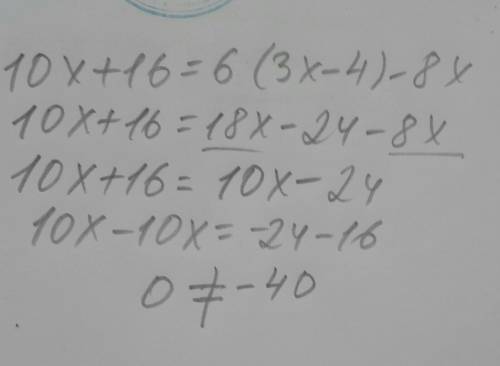 10x+16=6(3x-4)-8x
10x+16=18x-24-8x
10x+16=10x-24
10x-10x=-24-16
0≠-40